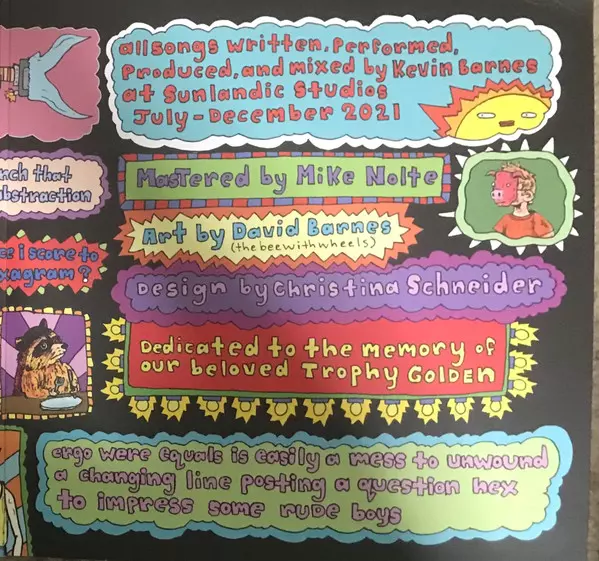 all songs written, performed,
produced, and mixed by Kevin Barnes
at Sunlandic Studios
July-December 2021
nch that
bstraction
Mastered by Mike Nolte
Art by David Barnes
(the bee with wheels)
ce i score to
xagram?
Design by Christina Schneider
Dedicated to the memory of
our beloved Trophy Golden
ergo were equals is easily a mess to unwound
a changing line posting a question hex
to impress some rude boys